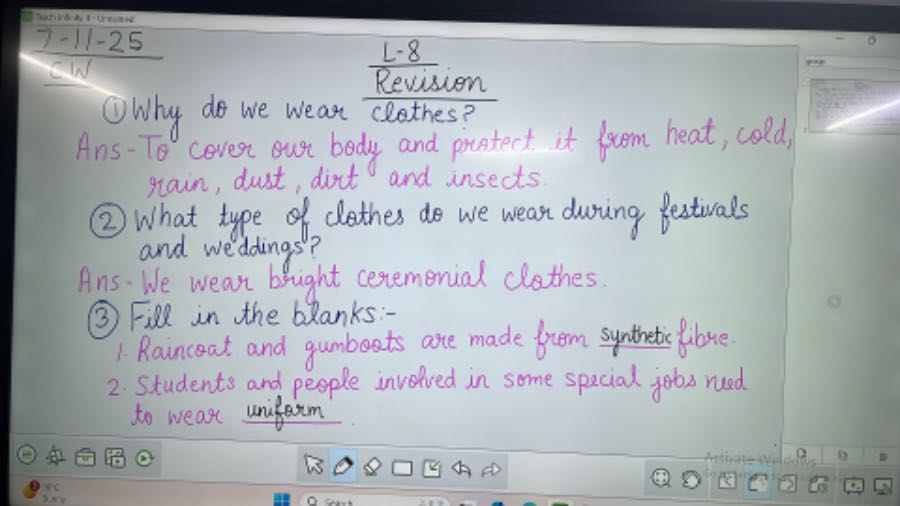 Teach Infinity 8 - Unnamed
7-11-25
CW
L-8
Revision
① Why do we wear clothes?
Ans - To cover our body and protect it from heat, cold,
rain, dust, dirt and insects.
② What type of clothes do we wear during festivals
and weddings?
Ans - We wear bright ceremonial clothes.
③ Fill in the blanks:-
1. Raincoat and gumboots are made from synthetic fibre.
2. Students and people involved in some special jobs need
to wear uniform.
Activate Windows
Search